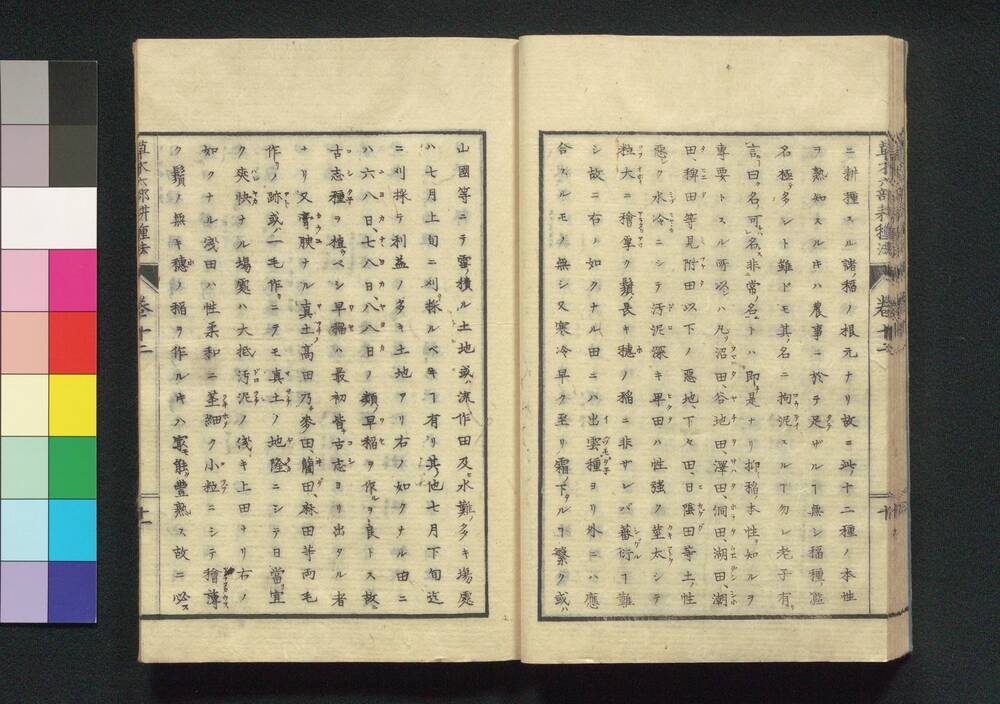 草木六部耕種法 巻十二 十
ニ耕種スル諸ノ稲ノ根元ナリ故ニ此ノ十二種ノ本性
ヲ熟知スルキハ農事ニ於テ足ザルヿ無シ稲種ノ濫
名極テ多シト雖ドモ其ノ名ニ拘泥スルヿ勿レ老子有
言曰名可名非常名トハ即チ是ナリ抑稲ノ本性ヲ知ルヲ
専要トスル所以ハ凡ソ沼田、谷地田、澤田、洞田、湖田、潮
田、稗田等見附田以下ノ悪地、下々田、日蔭田等土ノ性
悪ク水冷ニシテ汚泥深キ早田ハ性強ク莖太シテ
粒大ニ稃厚ク鬚長キ穂ノ稲ニ非ザレバ蕃衍ヿ難
シ故ニ右ノ如クナル田ニハ出雲種ヨリ外ニハ應
合スルモノ無シ又寒冷早ク至リ霜ノ下ルヿ繁ク或ハ
山國等ニテ雪ノ積ル土地或ハ流作田及ビ水難ノ多キ場處
ハ七月上旬ニ刈採ルベキヿ有リ其ノ他七月下旬迄
ニ刈採テ利益ノ多キ土地アリ右ノ如クナル田ニ
ハ六八日、七八日、八八日ノ類早稲ヲ作ルヲ良トス故ニ
古志種ヲ植ベシ早稲ハ最初皆古志ヨリ出タル者
ナリ又膏腴ナル真土高田乃麥田、藺田、麻田等両毛
作リノ跡或ハ一毛作ニテモ真土ノ地隆ニシテ日當宜
ク爽快ナル場處ハ大抵汚泥ノ浅キ上田ナリ右ノ
如クナル浅田ハ性柔和ニ莖細ク小粒ニシテ稃薄
ク鬚ノ無キ穂ノ稲ヲ作ルキハ寔能豊熟ス故ニ必ス
草木六部耕種法 巻十二 十一